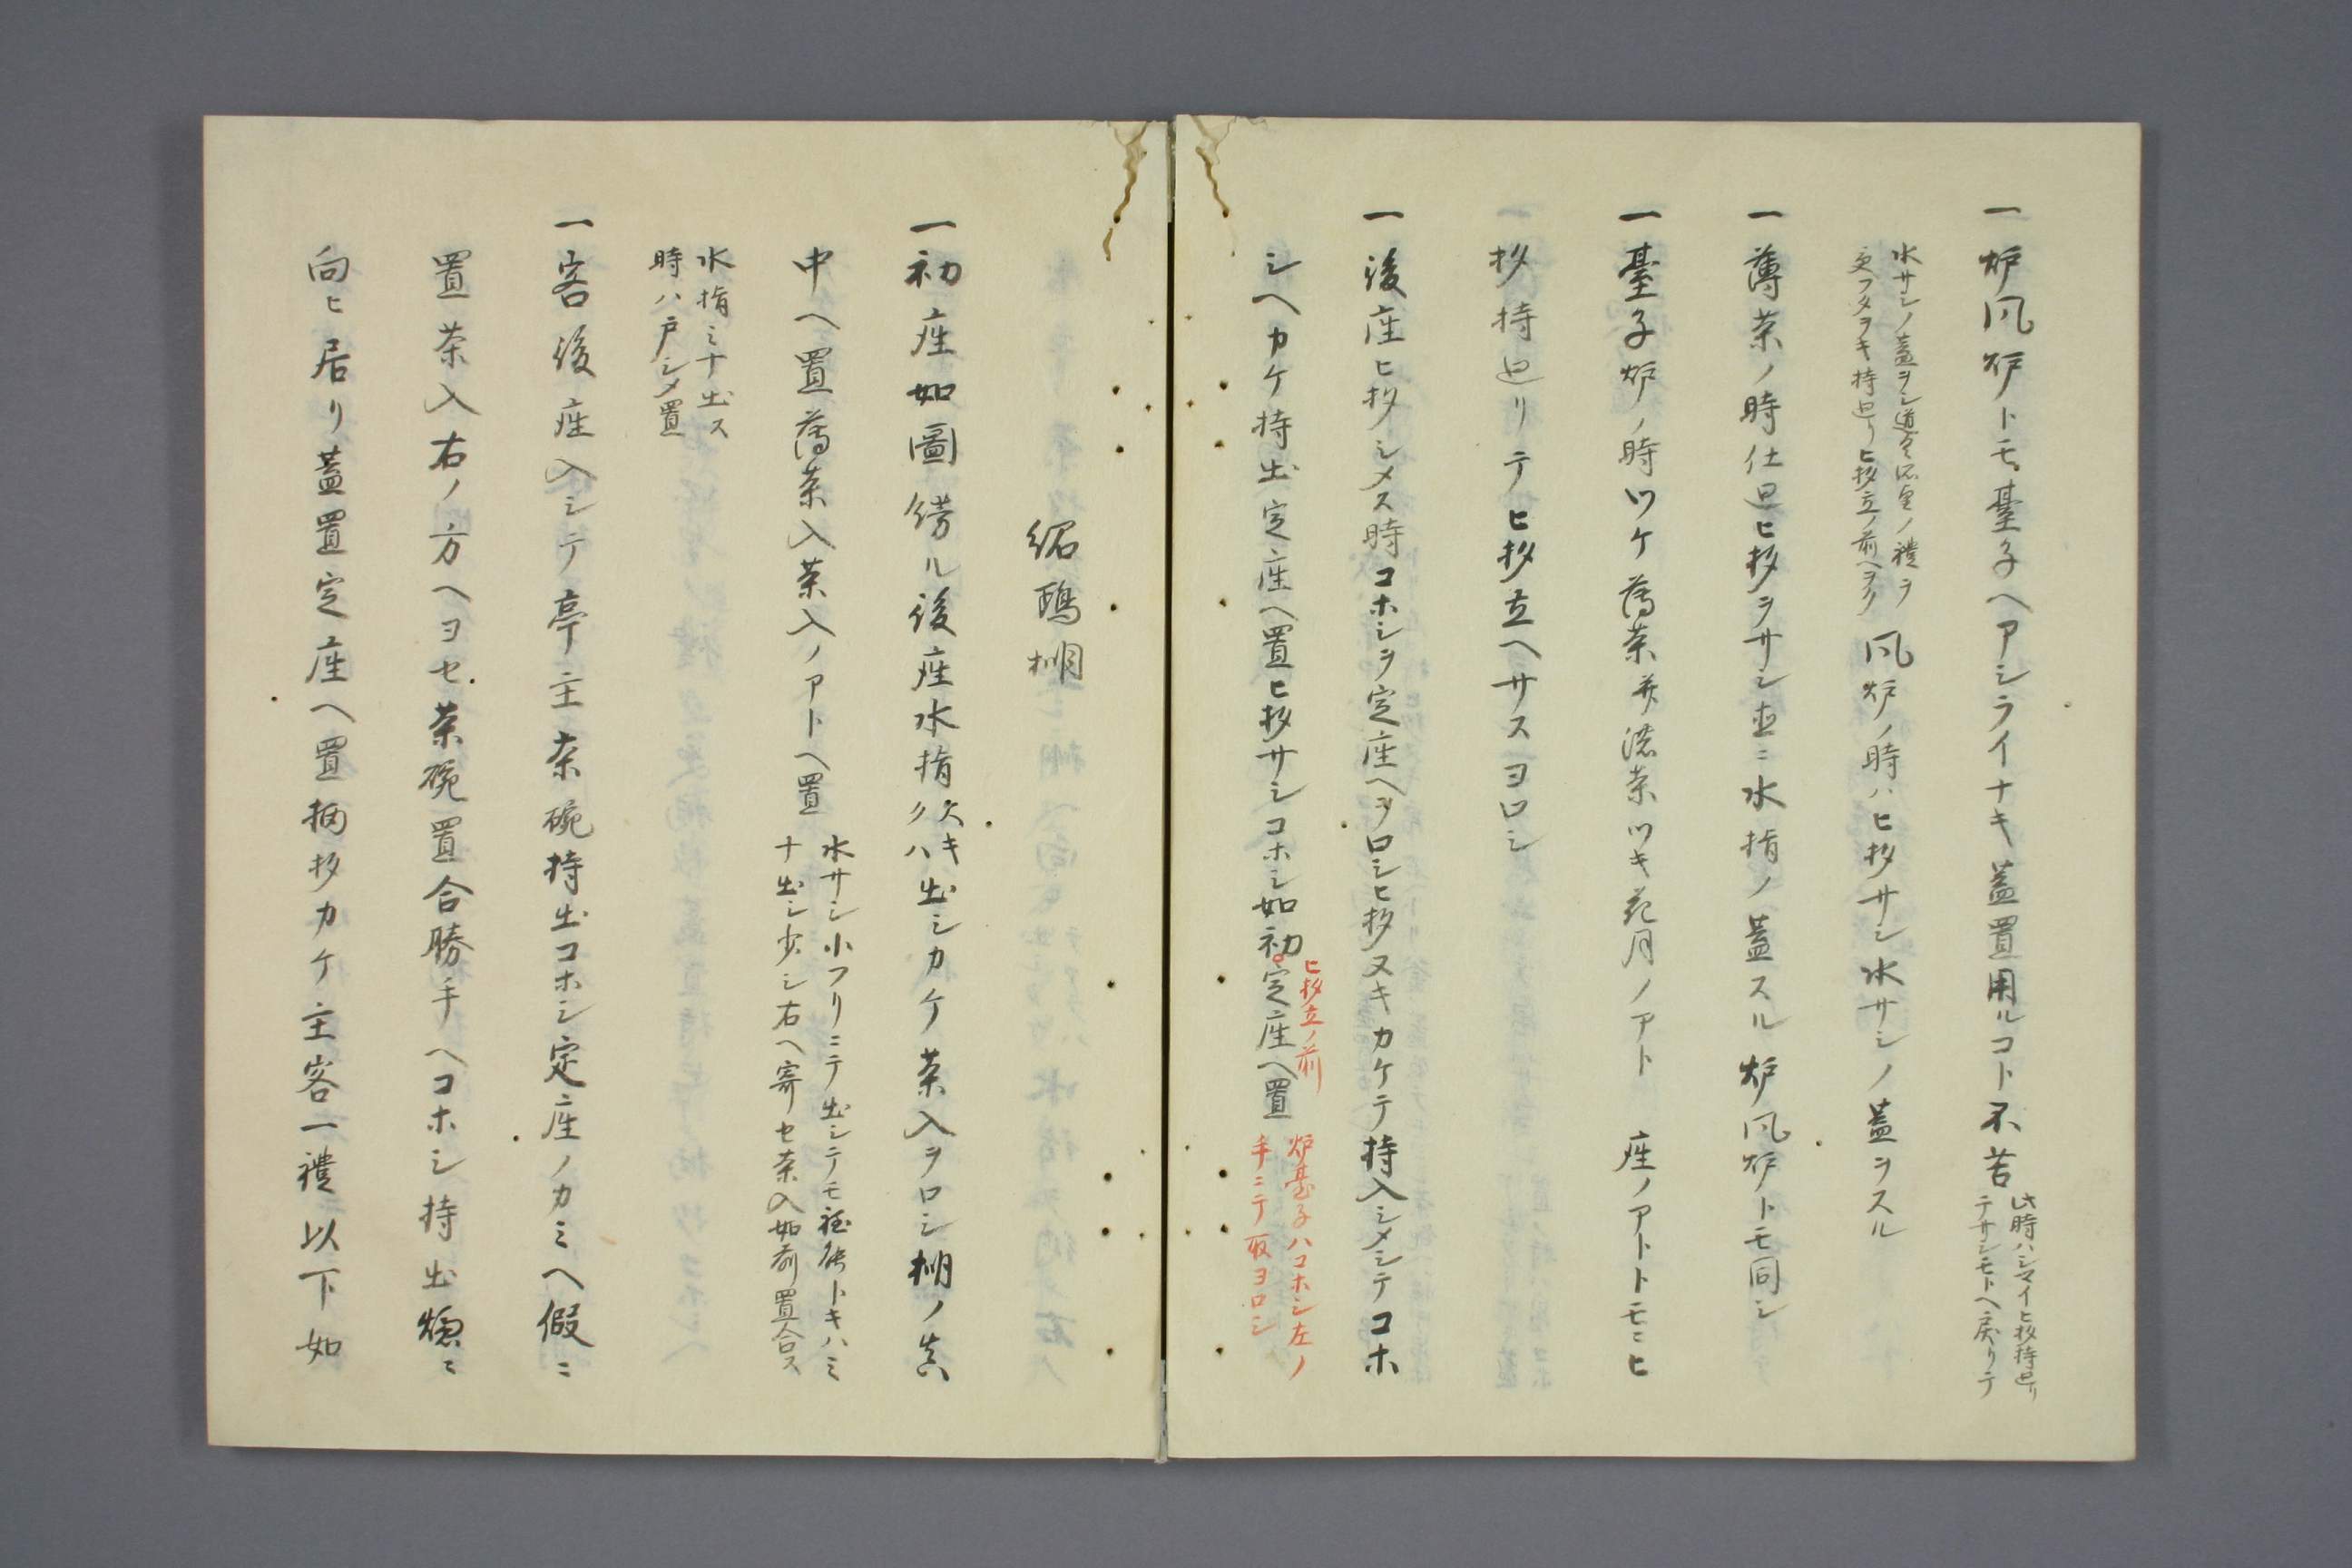 一炉風炉トモ臺子ヘアシライナキ蓋置用ルコト不苦
此時ハシマイヒ杉持廻リ
テサシモトヘ戻リテ
水サシノ蓋ヲシ道具所望ノ禮ヲ
更フタヲキ持廻リヒ杉立ノ前ヘヲク
風炉ノ時ハヒ杉サシ水サシノ蓋ヲスル
一薄茶ノ時仕廻ヒ杉ヲサシ直ニ水指ノ蓋スル炉風炉トモ同シ
一臺子炉ノ時ツケ薄茶并濃茶ツキ花月ノアト 座ノアトトモニヒ
杉持廻リテヒ杉立ヘサスヨロシ
一後座ヒ杉シメス時コホシヲ定座ヘヲロシヒ杉ヌキカケテ持入シメシテコホ
シヘカケ持出定座ヘ置ヒ杉サシコホシ如初定座ヘ置
ヒ杉立ノ前
炉臺子ハコホシ左ノ
手ニテ取ヨロシ
紹鴎棚
一初座如圖餝ル後座水指大キクハ出シカケ茶入ヲロシ棚ノ真
中ヘ置薄茶入茶入ノアトヘ置
水サシ小フリニテ出シテモ穏トキハミ
ナ出シ少シ右ヘ寄セ茶入如前置合ス
水指ミナ出ス
時ハ戸シメ置
一客後座入シテ亭主茶碗持出コホシ定座ノカミヘ假ニ
置茶入右ノ方ヘヨセ茶碗置合勝手ヘコホシ持出惣ニ
向ヒ居リ蓋置定座ヘ置柄杉カケ主客一禮以下如